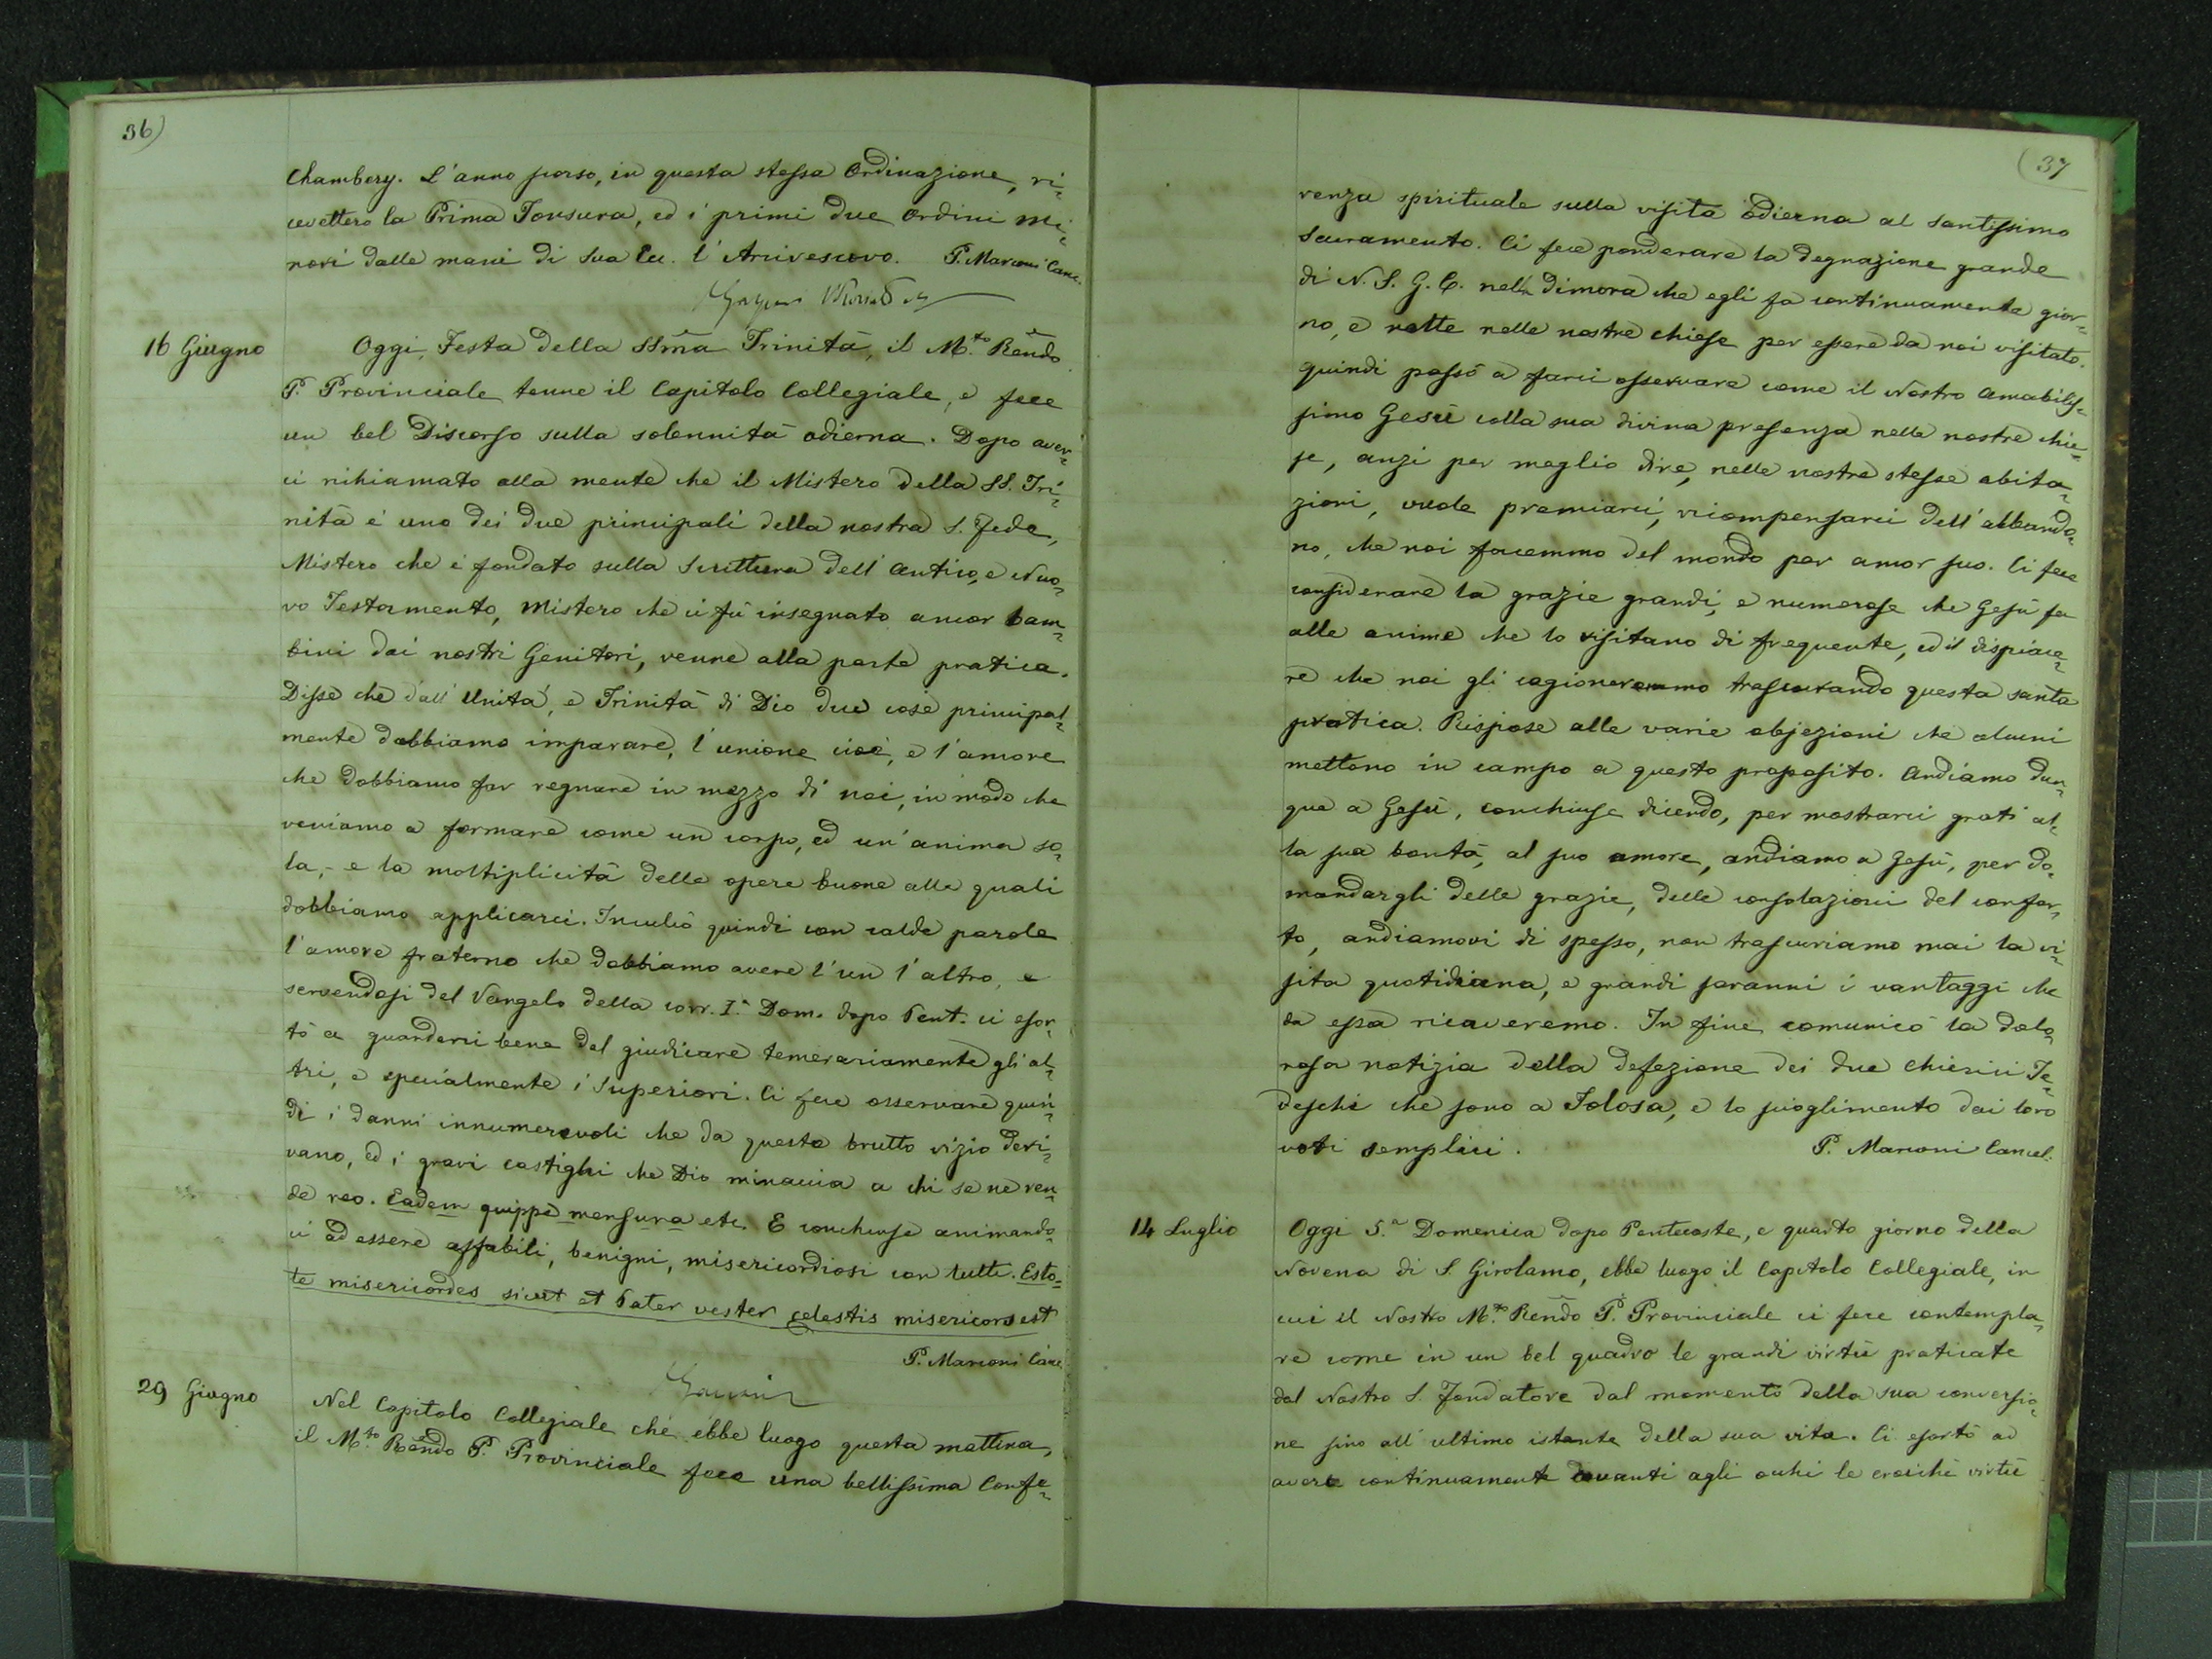 36)
Chambery. L'anno scorso, in questa stessa Ordinazione, ri¬
cevettero la Prima Tonsura, ed i primi due Ordini Mi¬
nori dalle mani di Sua Ecc. l'Arcivescovo. P. Marconi Canc.
16 Giugno Oggi, Festa della SSma Trinità, il M.to Rendo
P. Provinciale tenne il Capitolo Collegiale, e fece
un bel Discorso sulla solennità odierna. Dopo aver¬
ci richiamato alla mente che il Mistero della SS. Tri¬
nità è uno dei due principali della nostra S. Fede,
Mistero che è fondato sulla Scrittura dell'antico, e Nuo¬
vo Testamento, Mistero che ci fù insegnato ancor bam¬
bini dai nostri Genitori, venne alla parte pratica.
Disse che dall'Unità, e Trinità di Dio due cose principal¬
mente dobbiamo imparare, l'unione cioè, e l'amore
che dobbiamo far regnare in mezzo di noi, in modo che
veniamo a formare come un corpo, ed un'anima so¬
la, - e la moltiplicità delle opere buone alle quali
dobbiamo applicarci. Inculcò quindi con calde parole
l'amore fraterno che dobbiamo avere l'un l'altro, e
servendosi del Vangelo della corr. I.a Dom. dopo Pent. ci esor¬
tò a guardarci bene dal giudicare temerariamente gli al¬
tri, e specialmente i Superiori. Ci fece osservare quin¬
di i danni innumerevoli che da questo brutto vizio deri¬
vano, ed i gravi castighi che Dio minaccia a chi se ne ren¬
de reo. Eadem quippe mensura etc. E conchiuse animando¬
ci ad essere affabili, benigni, misericordiosi con tutti. Esto¬
te misericordes sicut et Pater vester celestis misericors est
P. Marconi Canc.
29 Giugno Nel Capitolo Collegiale che ebbe luogo questa mattina,
il M.to Rendo P. Provinciale fece una bellissima Confe¬
(37
renza spirituale sulla visita odierna al Santissimo
Sacramento. Ci fece ponderare la degnazione grande
di N. S. G. C. nella dimora che egli fa continuamente gior¬
no, e notte nelle nostre chiese per essere da noi visitato.
quindi passò a farci osservare come il Nostro amabilis¬
simo Gesù colla sua divina presenza nelle nostre chie¬
se, anzi per meglio dire, nelle nostre stesse abita¬
zioni, vuole premiarci, ricompensarci dell'abbando¬
no, che noi facemmo del mondo per amor suo. Ci fece
considerare la grazie grandi, e numerose che Gesù fa
alle anime che lo visitano di frequente, ed il dispiace¬
re che noi gli cagioneremmo trascurando questa santa
pratica. Rispose alle varie objezioni che alcuni
mettono in campo a questo proposito. Andiamo dun¬
que a Gesù, conchiuse dicendo, per mostrarci grati al¬
la sua bontà, al suo amore, andiamo a Gesù, per do¬
mandargli delle grazie, delle consolazioni del confor¬
to, andiamovi di spesso, non trascuriamo mai la vi¬
sita quotidiana, e grandi saranni i vantaggi che
da essa ricaveremo. In fine comunicò la dolo¬
rosa notizia della defezione dei due Chierici Te¬
deschi che sono a Tolosa, e lo scioglimento dai loro
voti semplici. P. Marconi Cancel.
14 Luglio Oggi 5.a Domenica dopo Pentecoste, e quarto giorno della
Novena di S. Girolamo, ebbe luogo il Capitolo Collegiale, in
cui il Nostro M.to Rendo P. Provinciale ci fece contempla¬
re come in un bel quadro le grandi virtù praticate
dal Nostro S. Fondatore dal momento della sua conversio¬
ne sino all'ultimo istante della sua vita. Ci esortò ad
avere continuamente davanti agli occhi le eroiche virtù